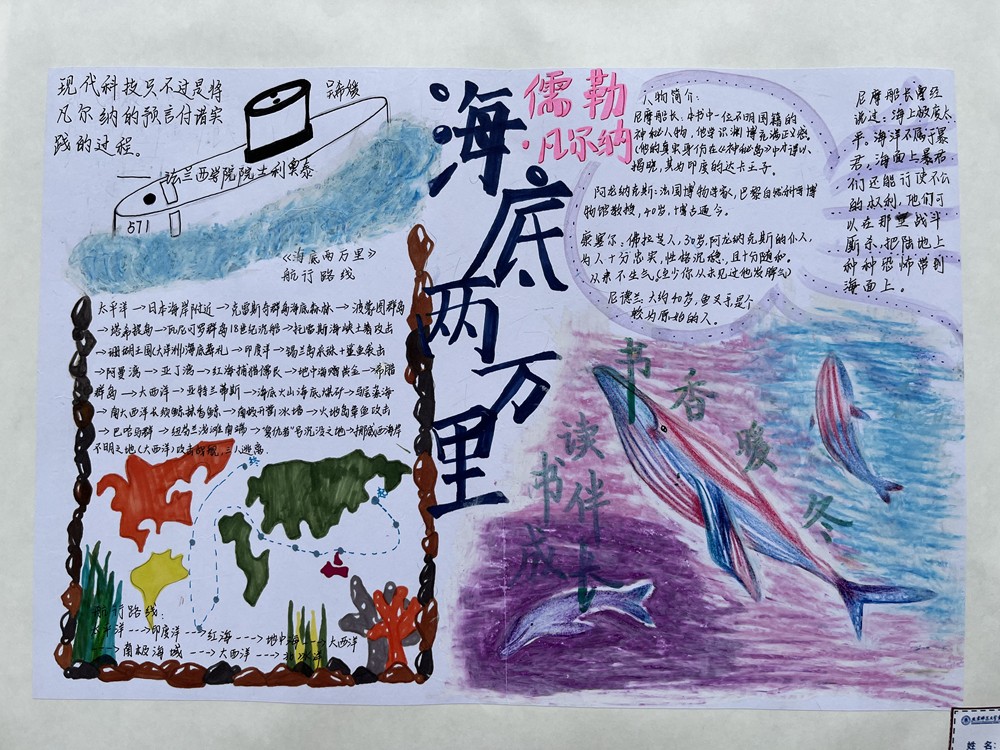 现代科技只不过是将
凡尔纳的预言付诸实
践的过程。
——法兰西学院院士利奥泰
571
《海底两万里》
航行路线
太平洋→日本海岸附近→克雷斯奇群岛海底森林→波蒙图群岛
→塔希提岛→瓦尼可罗群岛18世纪沉船→托雷斯海峡土著攻击
→珊瑚王国(大洋洲)海底葬礼→印度洋→锡兰岛采珠+鲨鱼袭击
→阿曼湾→亚丁湾→红海捕猎儒艮→地中海赠黄金→希腊
群岛→大西洋→亚特兰蒂斯→海底火山海底煤矿→马尾藻海
→南大西洋长须鲸抹香鲸→南极开凿冰墙→火地岛章鱼攻击
→巴哈马群→纽芬兰浅滩南端→"复仇者"号沉没之地→挪威西海岸
不明之地(大西洋)攻击战舰,三人逃离.
终
起
航行路线:
太平洋--→印度洋--→红海---→地中海--→大西洋
--→南极海域---→大西洋---→北冰洋
海底两万里
儒勒
·凡尔纳
人物简介:
尼摩船长:本书中一位不明国籍的
神秘人物,他学识渊博充满正义感,
(他的真实身份在《神秘岛》中才得以
揭晓,其为印度的达卡王子。
阿龙纳克斯:法国博物学家,巴黎自然科学博
物馆教授,40岁,博古通今。
康塞尔:佛拉芒人,30岁,阿龙纳克斯的仆人,
为人十分忠实,性格沉稳,且十分随和。
从来不生气。(至少你从未见过他发脾气)
尼德兰:大约40岁,鱼叉手,是个
较为原始的人。
尼摩船长曾经
说过:海上极度太
平。海洋不属于暴
君,海面上暴君
们还能行使不公
的权利,他们可
以在那里战斗
厮杀,把陆地上
种种恐怖带到
海面上。
书香暖冬
读书伴成长
姓 名: